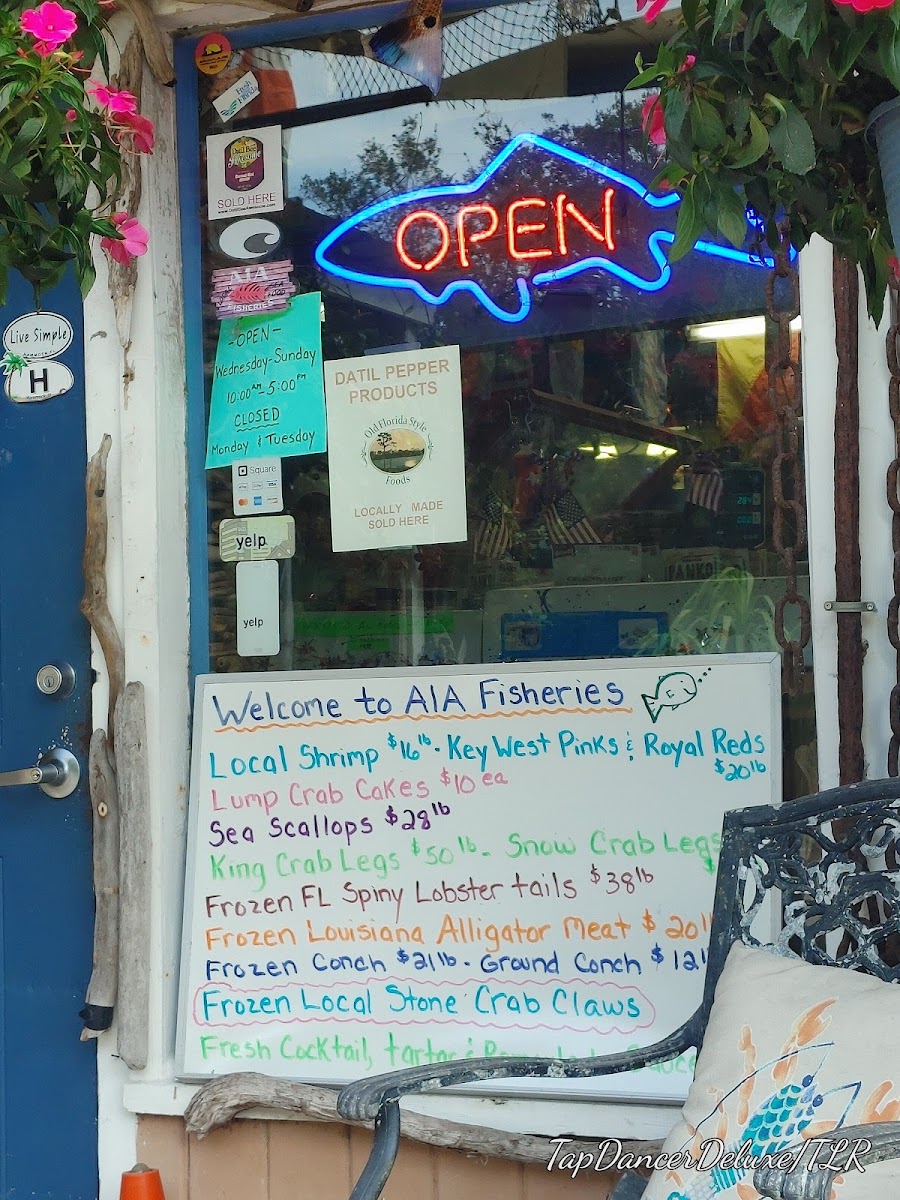 OPEN
SOLD HERE
A1A
FISHERIES
-OPEN-
Wednesday-Sunday
10:00AM-5:00PM
CLOSED
Monday & Tuesday
DATIL PEPPER
PRODUCTS
Old Florida Style
Foods
LOCALLY MADE
SOLD HERE
Live Simple
H
Square
yelp
yelp
PANKO
Welcome to A1A Fisheries
Local Shrimp $16 lb. Key West Pinks & Royal Reds
$20 lb
Lump Crab Cakes $10 ea
Sea Scallops $28 lb
King Crab Legs $50 lb - Snow Crab Legs
Frozen FL Spiny Lobster tails $38 lb
Frozen Louisiana Alligator Meat $20 lb
Frozen Conch $21 lb - Ground Conch $12 lb
Frozen Local Stone Crab Claws
Fresh Cocktail, tartar & Sauce
TapDancerDeluxe/TLR